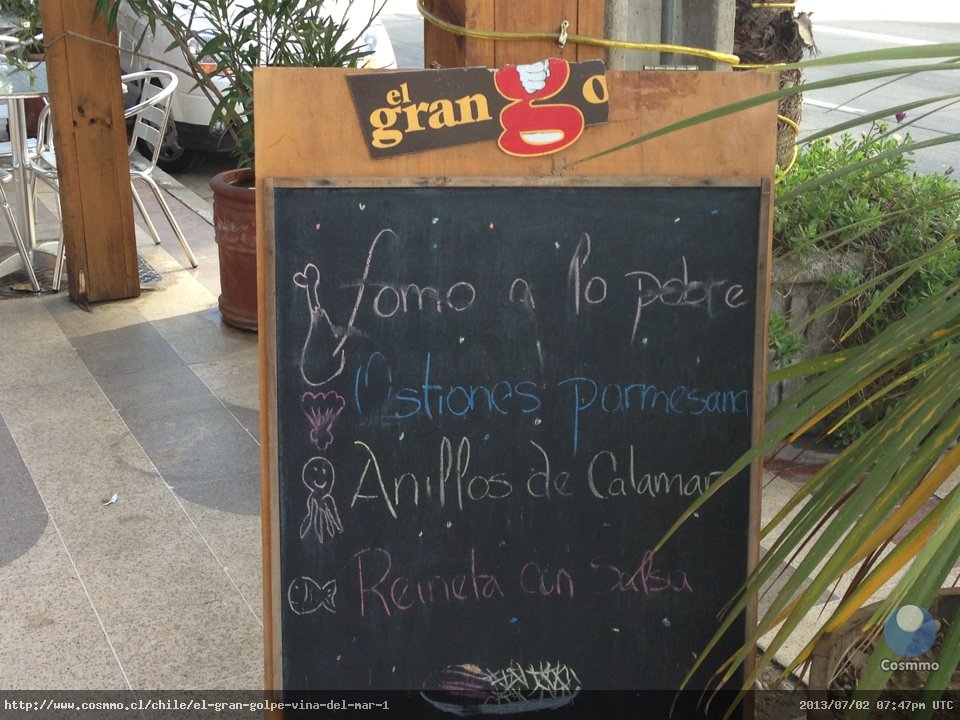 el
gran g o
Lomo a lo pobre
Ostiones parmesana
Anillos de Calamar
Reineta con salsa
Cosmmo
http://www.cosmmo.cl/chile/el-gran-golpe-vina-del-mar-1
2013/07/02 07:47pm UTC